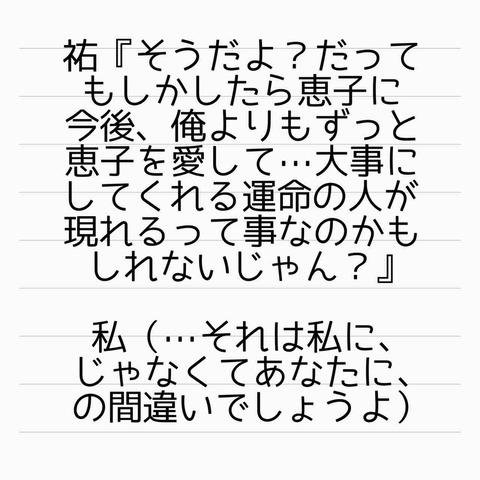 祐『そうだよ？だって
もしかしたら恵子に
今後、俺よりもずっと
恵子を愛して…大事に
してくれる運命の人が
現れるって事なのかも
しれないじゃん？』
私（…それは私に、
じゃなくてあなたに、
の間違いでしょうよ）